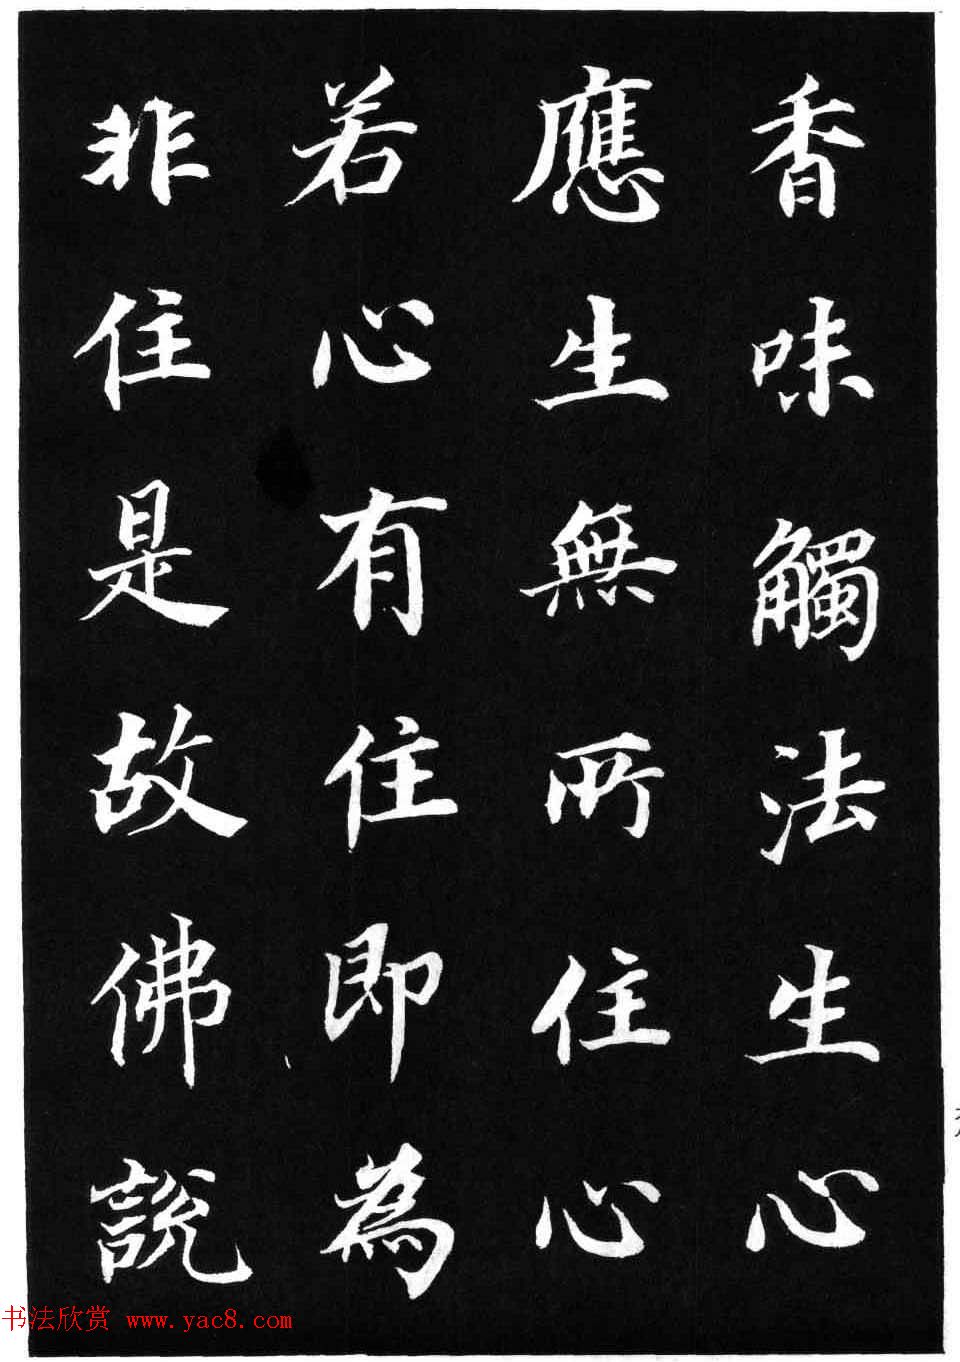 香味觸法生心
應生無所住心
若心有住即為
非住是故佛說
书法欣赏 www.yac8.com